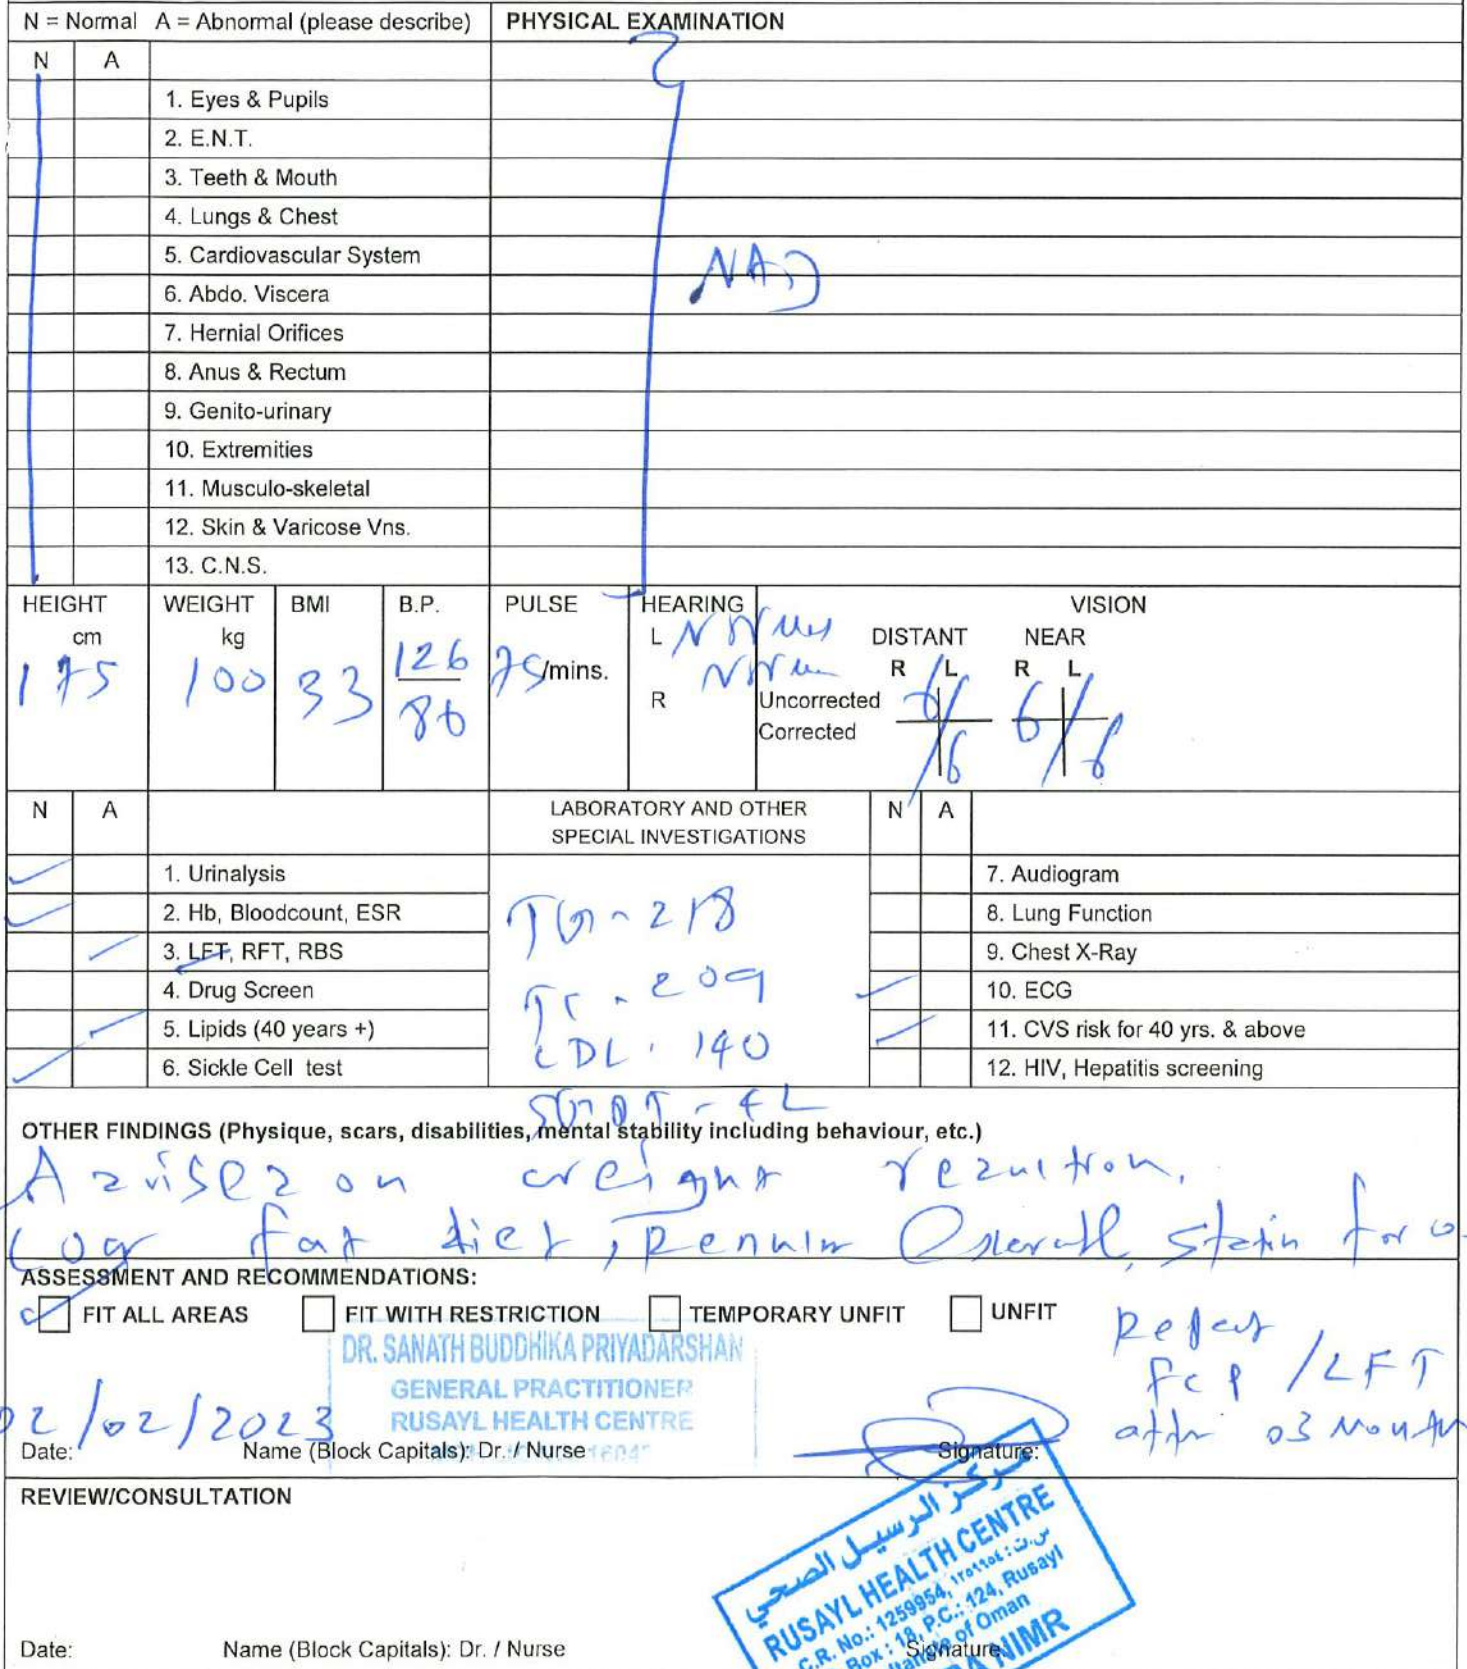 N = Normal A = Abnormal (please describe) PHYSICAL EXAMINATION
N A
1. Eyes & Pupils
2. E.N.T.
3. Teeth & Mouth
4. Lungs & Chest
5. Cardiovascular System
NAD
6. Abdo. Viscera
7. Hernial Orifices
8. Anus & Rectum
9. Genito-urinary
10. Extremities
11. Musculo-skeletal
12. Skin & Varicose Vns.
13. C.N.S.
HEIGHT WEIGHT BMI B.P. PULSE HEARING VISION
cm kg L DISTANT NEAR
175 100 33 126 75/mins. R L R L
86 R Uncorrected 6 6
Corrected 6 6
N A LABORATORY AND OTHER N A
SPECIAL INVESTIGATIONS
1. Urinalysis 7. Audiogram
2. Hb, Bloodcount, ESR TG - 218 8. Lung Function
3. LFT, RFT, RBS 9. Chest X-Ray
4. Drug Screen TC - 209 10. ECG
5. Lipids (40 years +) LDL - 140 11. CVS risk for 40 yrs. & above
6. Sickle Cell test 12. HIV, Hepatitis screening
OTHER FINDINGS (Physique, scars, disabilities, mental stability including behaviour, etc.)
on weight
fat diet, statin for
ASSESSMENT AND RECOMMENDATIONS:
FIT ALL AREAS FIT WITH RESTRICTION TEMPORARY UNFIT UNFIT
Repeat
/LFT
03 Month
DR. SANATH BUDDHIKA PRIYADARSHAN
GENERAL PRACTITIONER
RUSAYL HEALTH CENTRE
02/02/2023
Date: Name (Block Capitals): Dr. / Nurse Signature:
REVIEW/CONSULTATION
مركز الرسيل الصحي
RUSAYL HEALTH CENTRE
س.ت: ١٢٥٩٩٥٤
C.R. No.: 1259954,
Box : 18, P.C.: 124, Rusayl
of Oman
NIMR
Date: Name (Block Capitals): Dr. / Nurse Signature